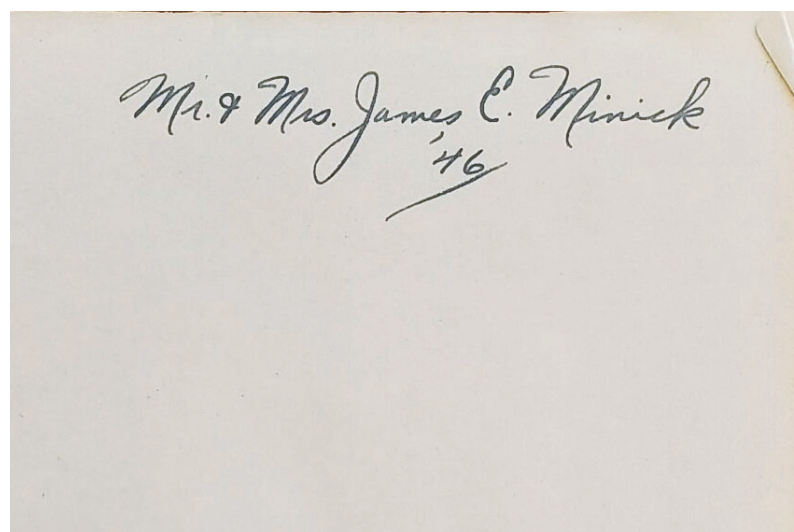 Mr. & Mrs. James E. Minick
'46